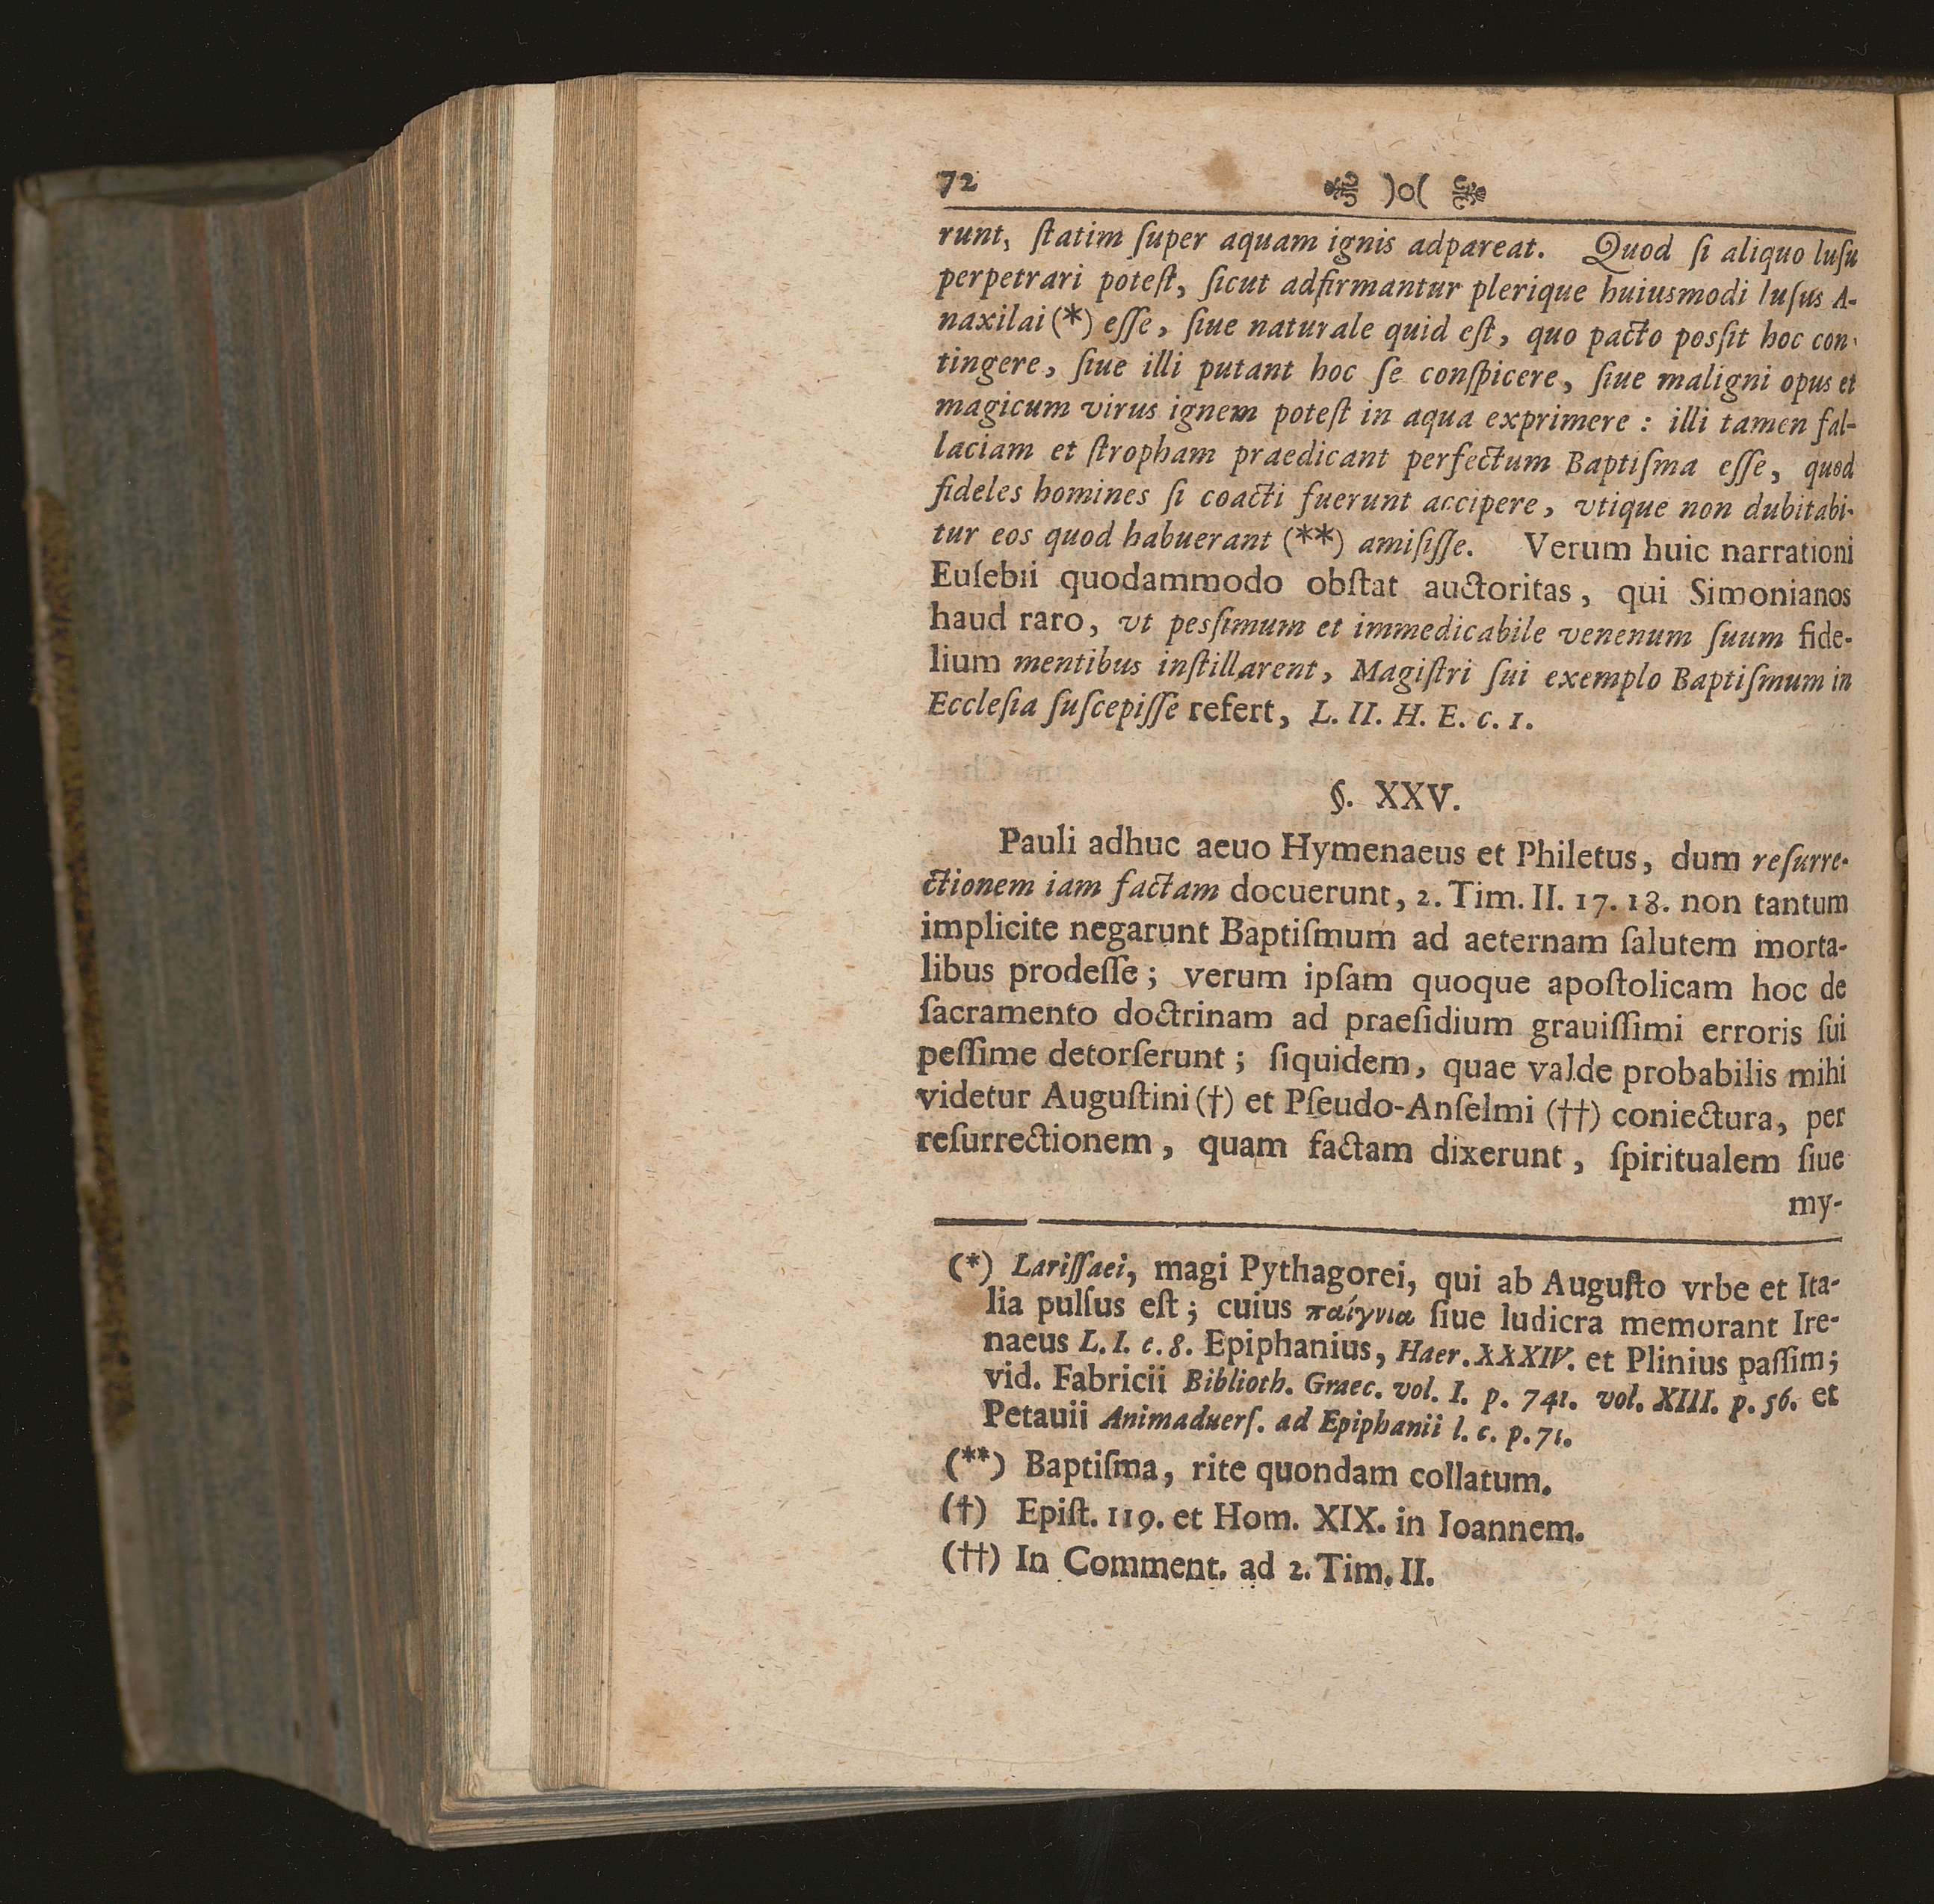 72 )o(
runt, ſtatim ſuper aquam ignis adpareat. Quod ſi aliquo luſu
perpetrari poteſt, ſicut adfirmantur plerique huiusmodi luſus A-
naxilai (*) eſſe, ſiue naturale quid eſt, quo pacto posſit hoc con-
tingere, ſiue illi putant hoc ſe conſpicere, ſiue maligni opus et
magicum virus ignem poteſt in aqua exprimere : illi tamen fal-
laciam et ſtropham praedicant perfectum Baptiſma eſſe, quod
fideles homines ſi coacti fuerunt accipere, vtique non dubitabi-
tur eos quod habuerant (**) amiſiſſe. Verum huic narrationi
Euſebii quodammodo obſtat auctoritas, qui Simonianos
haud raro, vt pesſimum et immedicabile venenum ſuum fide-
lium mentibus inſtillarent, Magiſtri ſui exemplo Baptiſmum in
Eccleſia ſuſcepiſſe refert, L. II. H. E. c. 1.
§. XXV.
Pauli adhuc aeuo Hymenaeus et Philetus, dum reſurre-
ctionem iam factam docuerunt, 2. Tim. II. 17. 18. non tantum
implicite negarunt Baptiſmum ad aeternam ſalutem morta-
libus prodeſſe ; verum ipſam quoque apoſtolicam hoc de
ſacramento doctrinam ad praeſidium grauiſſimi erroris ſui
peſſime detorſerunt ; ſiquidem, quae valde probabilis mihi
videtur Auguſtini (†) et Pſeudo-Anſelmi (††) coniectura, per
reſurrectionem, quam factam dixerunt, ſpiritualem ſiue
my-
(*) Lariſſaei, magi Pythagorei, qui ab Auguſto vrbe et Ita-
lia pulſus eſt ; cuius παίγνια ſiue ludicra memorant Ire-
naeus L. I. c. 8. Epiphanius, Haer. XXXIV. et Plinius paſſim;
vid. Fabricii Biblioth. Graec. vol. I. p. 741. vol. XIII. p. 56. et
Petauii Animaduerſ. ad Epiphanii l. c. p. 71.
(**) Baptiſma, rite quondam collatum.
(†) Epiſt. 119. et Hom. XIX. in Ioannem.
(††) In Comment. ad 2. Tim. II.